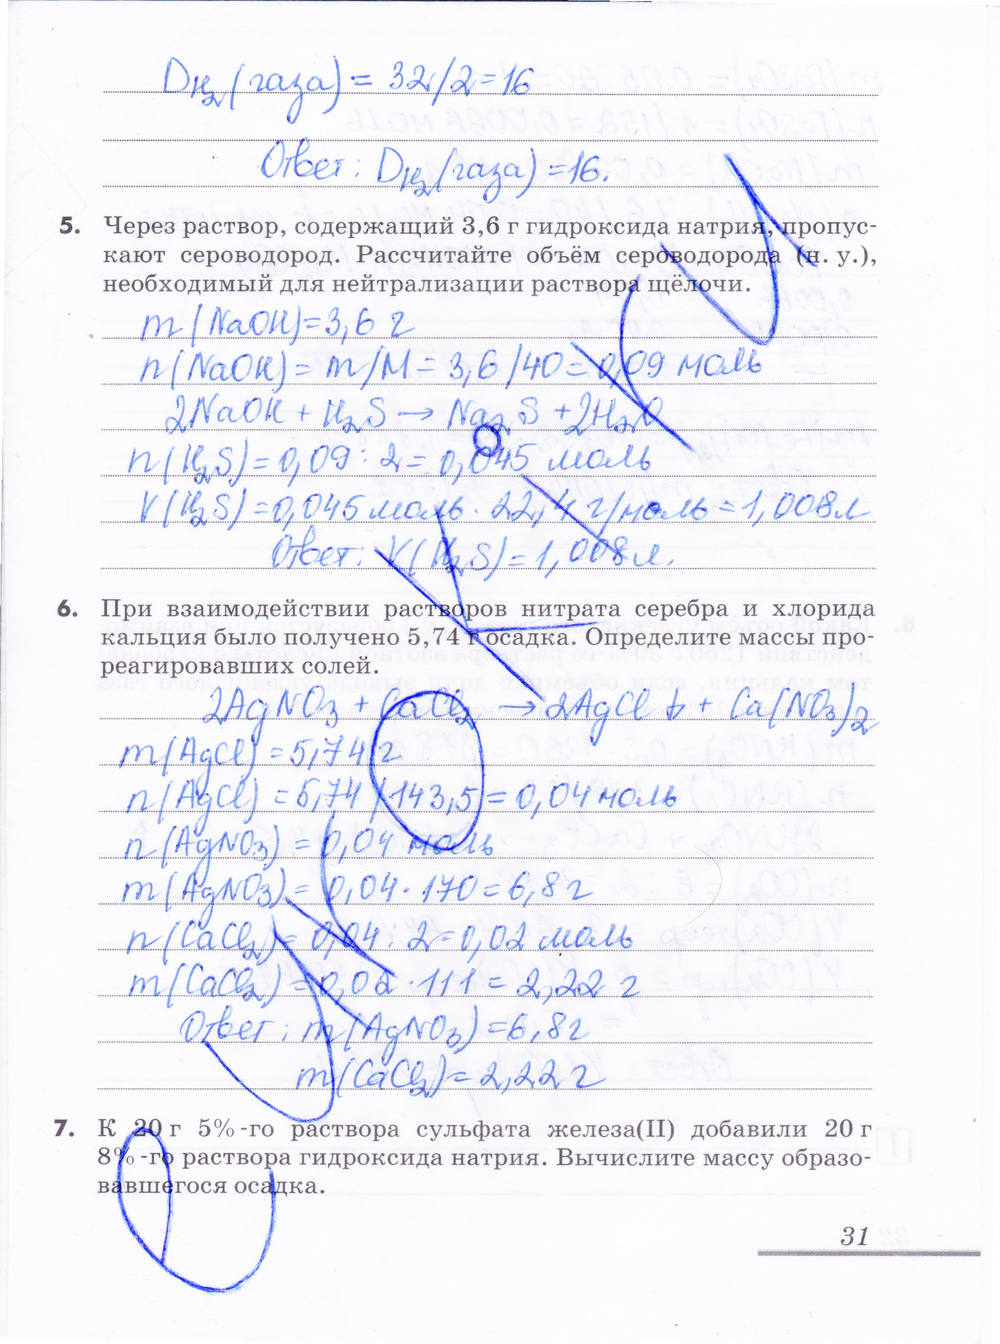 D H₂ (газа) = 32/2 = 16
Ответ: D H₂ (газа) = 16.
5. Через раствор, содержащий 3,6 г гидроксида натрия, пропус-
кают сероводород. Рассчитайте объём сероводорода (н. у.),
необходимый для нейтрализации раствора щёлочи.
m(NaOH) = 3,6 г
n(NaOH) = m/M = 3,6/40 = 0,09 моль
2NaOH + H₂S → Na₂S + 2H₂O
n(H₂S) = 0,09 : 2 = 0,045 моль
V(H₂S) = 0,045 моль · 22,4 г/моль = 1,008 л
Ответ: V(H₂S) = 1,008 л.
6. При взаимодействии растворов нитрата серебра и хлорида
кальция было получено 5,74 г осадка. Определите массы про-
реагировавших солей.
2AgNO₃ + CaCl₂ → 2AgCl↓ + Ca(NO₃)₂
m(AgCl) = 5,74 г
n(AgCl) = 5,74 / 143,5 = 0,04 моль
n(AgNO₃) = 0,04 моль
m(AgNO₃) = 0,04 · 170 = 6,8 г
n(CaCl₂) = 0,04 : 2 = 0,02 моль
m(CaCl₂) = 0,02 · 111 = 2,22 г
Ответ: m(AgNO₃) = 6,8 г
m(CaCl₂) = 2,22 г
7. К 20 г 5%-го раствора сульфата железа(II) добавили 20 г
8%-го раствора гидроксида натрия. Вычислите массу образо-
вавшегося осадка.
31